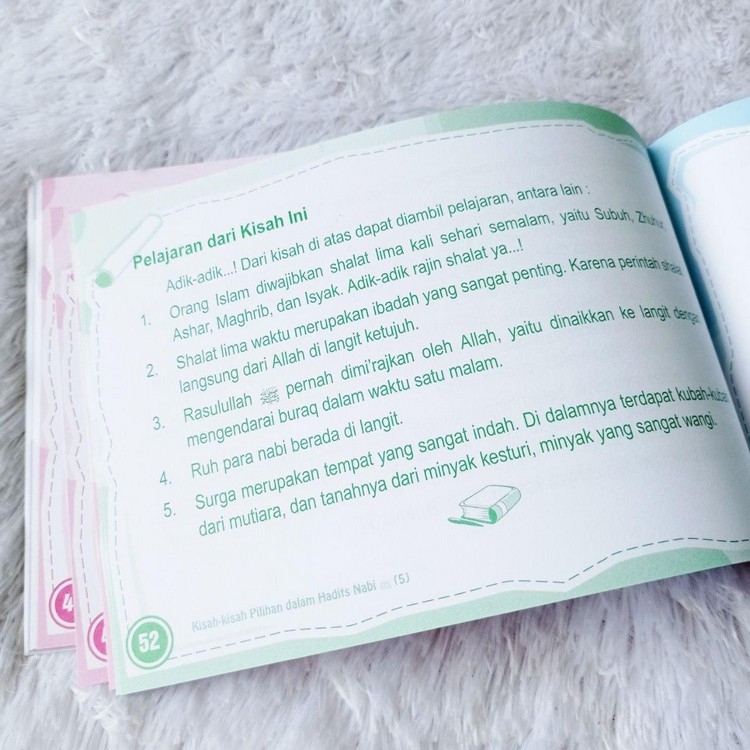 Pelajaran dari Kisah Ini
Adik-adik...! Dari kisah di atas dapat diambil pelajaran, antara lain :
1. Orang Islam diwajibkan shalat lima kali sehari semalam, yaitu Subuh, Zhuhur
Ashar, Maghrib, dan Isyak. Adik-adik rajin shalat ya...!
2. Shalat lima waktu merupakan ibadah yang sangat penting. Karena perintah shalat
langsung dari Allah di langit ketujuh.
3. Rasulullah ﷺ pernah dimi'rajkan oleh Allah, yaitu dinaikkan ke langit dengan
mengendarai buraq dalam waktu satu malam.
4. Ruh para nabi berada di langit.
5. Surga merupakan tempat yang sangat indah. Di dalamnya terdapat kubah-kubah
dari mutiara, dan tanahnya dari minyak kesturi, minyak yang sangat wangi.
52 Kisah-kisah Pilihan dalam Hadits Nabi ﷺ (5)
4